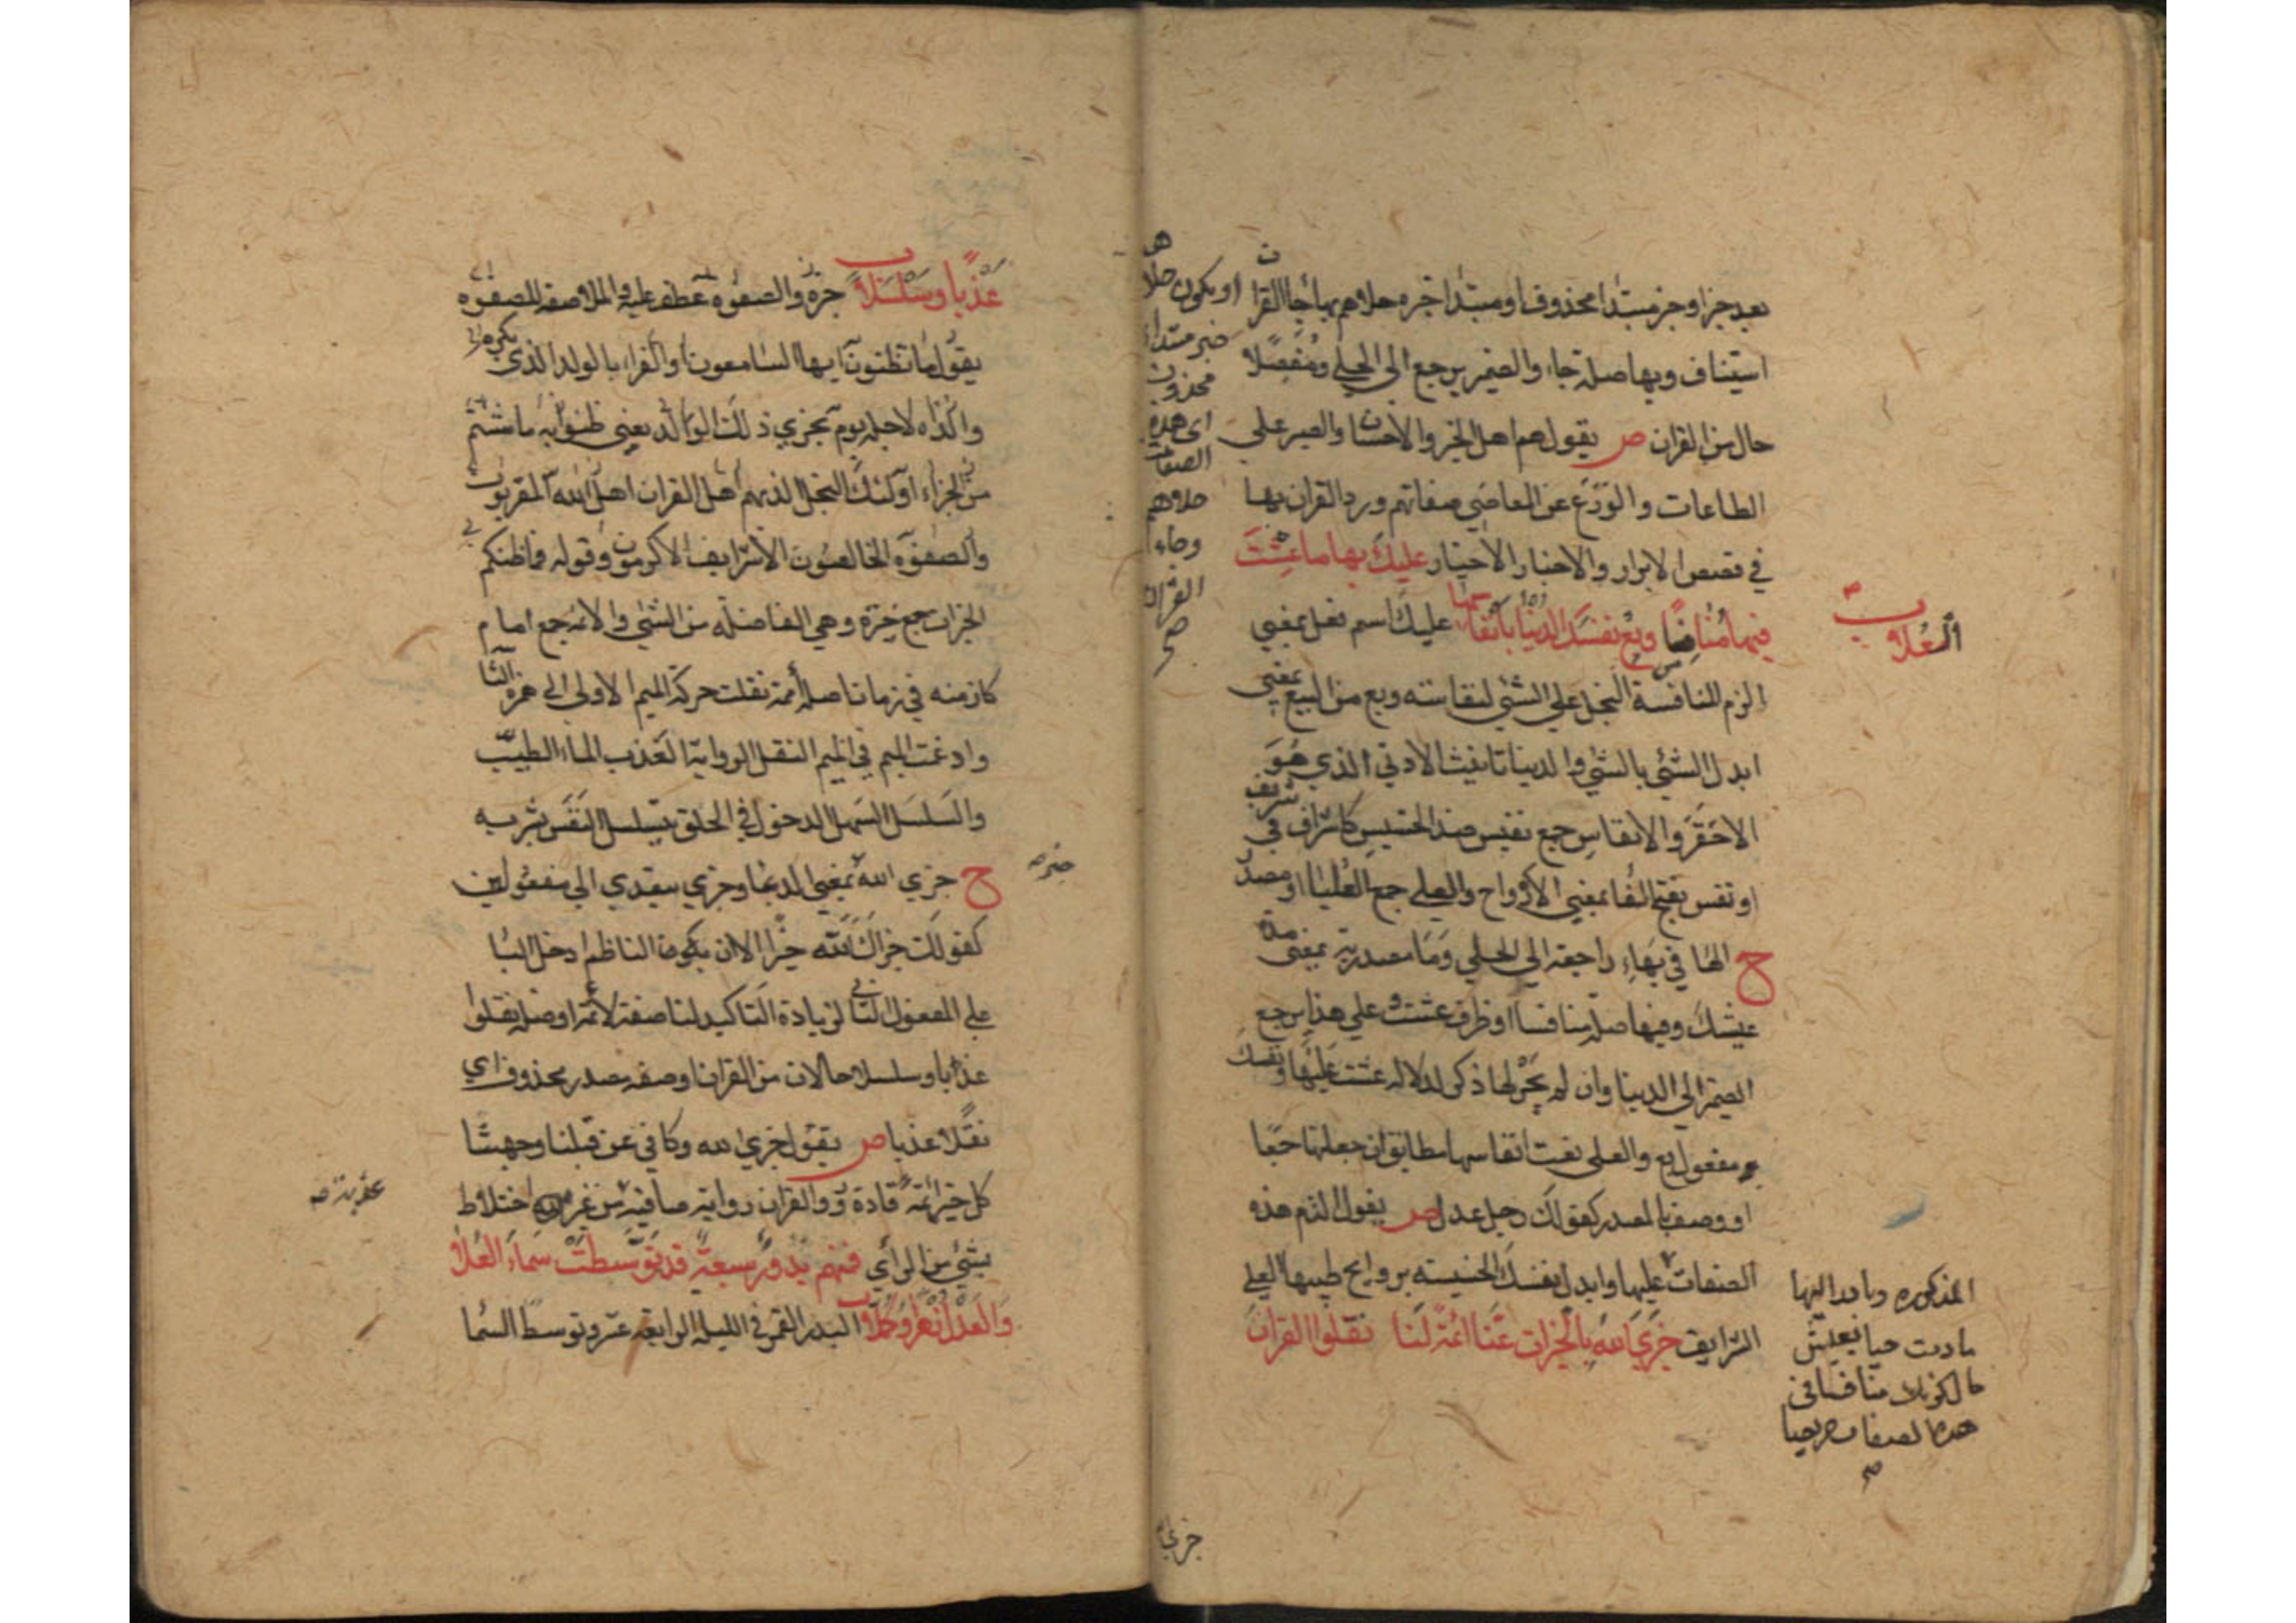 بعد جزا وجز مبتدا محذوف او مبتدا خبره حلاهم بها جاء القرا
استيناف وبها صلة جاء والضمير يرجع الى الحلى ومفصلا
حال من القران ص يقول هم اهل الخير والاحسان والصبر على
الطاعات والورع عن المعاصي صفاتهم ورد القران بها
في قصص الابرار والاخبار الاخيار عليك بها ما عشت
فيها منافسا وبع نفسك الدنيا بانفاسها عليك اسم فعل بمعنى
الزم المنافسة البخل على الشئ لنفاسته وبع من البيع بمعنى
ابدل الشئي بالشئ والدنيا تانيث الادنى الذي هو
الاحقر والانفاس جمع نفيس ضد الخسيس كاشراف في شريف
او نفس بفتح الفا بمعنى الارواح والعلى جمع العليا او مصدر
ح الها في بهاء راجعة الى الحلي وما مصدرية بمعنى مدة
عيشك وفيها صلة منافسا او ظرف عشت وعلى هذا يرجع
الضمير الى الدنيا وان لم يجر لها ذكر لدلالة عشت عليها ونفسك
مفعول بع والعلى نعت انفاسها مطابق ان جعلتها جمعا
او وصف بالمصدر كقولك رجل عدل ص يقول الزم هذه
الصفات عليها وابدل نفسك الخسيسة بروايح طيبها العلى
الشرايف جزى الله بالخيرات عنا ائمة لنا نقلوا القران
العلا
او يكون حلا
خبر مبتدا
محذوف
اى هذه
الصفات
حلاهم
وجاء
القران
صح
المذكوره وبادر اليها
ما دمت حيا بعيش
حال كونك منافسا في
هذه الصفات
صح
جزى
عذبا وسلسلا خيرة والصفوة عطف عليه والملا صفة الصفوه
يقول ما تظنون ايها السامعون والقراء بالولد الذي يكرم
والداه لاجله يوم يجزي ذلك الوالد يعني ظنوا به ما شئتم
من الجزاء اولئك النجل الذيهم اهل القران اهل الله المقربون
والصفوه الخالصون الاشرايف الاكرمون وقوله فما ظنكم
الخيرات جمع خيرة وهي الفاضلة من الشئ والائمة جمع امام
كازمنه في زمان اصله أممة نقلت حركة الميم الاولى الى همزة
وادغمت الميم في الميم النقل الرواية العذب الماء الطيب
والسلسل السهل الدخول في الحلق يتسلسل النفس بشربه
ح جزي الله بمعنى الدعا وجزي يتعدي الي مفعولين
كقولك جزاك الله خيرا الا ان الناظم ادخل البا
على المفعول الثاني لزيادة التاكيد لنا صفة لائمة او صلة نقلوا
عذبا وسلسلا حالان من القران او صفة مصدر محذوف اي
نقلا عذبا ص يقول جزي الله وكافى عن قبلنا وجهتنا
كل خير ائمة قادة رووا القران رواية صافية من غير اختلاط
بشئ من الراي فمنهم بدور سبعة قد توسطت سماء العلا
والعدل زهرا وكملا البدر القمر في الليلة الرابعة عشر وتوسط السما